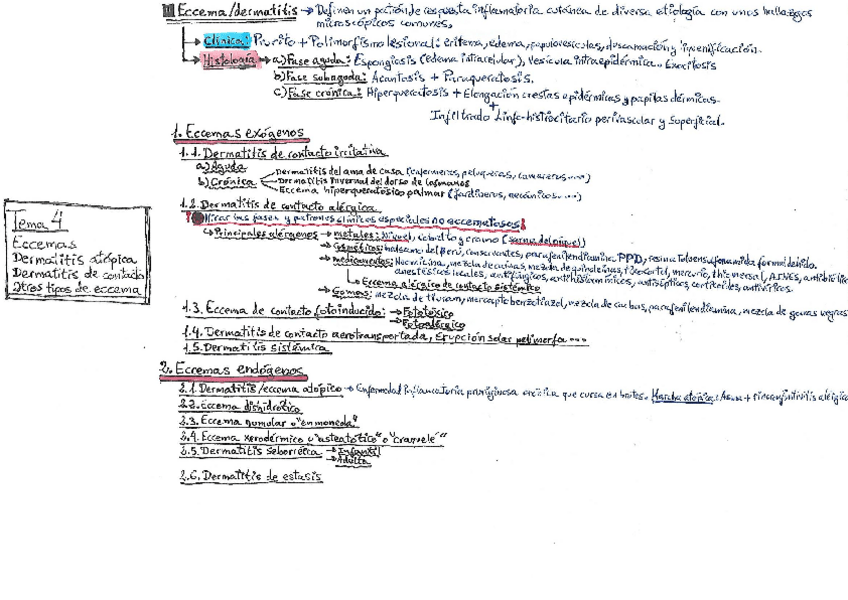 Eccema/dermatitis → Definen un patrón de respuesta inflamatoria cutánea de diversa etiología con unos hallazgos
microscópicos comunes.
Clínica: Prurito + Polimorfismo lesional: eritema, edema, papulovesículas, descamación y liquenificación.
Histología → a) Fase aguda: Espongiosis (edema intracelular), Vesícula intraepidérmica. Exocitosis
b) Fase subaguda: Acantosis + Paraqueratosis.
c) Fase crónica: Hiperqueratosis + Elongación crestas epidérmicas y papilas dérmicas.
+
Infiltrado Linfo-histiocitario perivascular y superficial.
1. Eccemas exógenos
1.1. Dermatitis de contacto irritativa
a) Aguda
b) Crónica
Dermatitis del ama de casa (enfermeras, peluqueras, camareras....)
Dermatitis invernal del dorso de las manos
Eccema hiperqueratósico palmar (jardineros, mecánicos....)
1.2. Dermatitis de contacto alérgica
Mirar las fases y patrones clínicos especiales no eccematosos!
Principales alérgenos → metales: Níquel, cobalto y cromo
Cosméticos: bálsamo del Perú, conservantes, parafenilendiamina PPD, resina Toluensulfonamida formaldehído.
Medicamentos: Neomicina, mezcla de cainas, mezcla de quinoleinas, mercurio, thimerosal, AINES,
anestésicos locales, antifúngicos, antihistamínicos, antisépticos, corticoides, antivíricos.
Eccema alérgico de contacto sistémico
Gomas: mezcla de tiuram, mercaptobenzotiazol, mezcla de carbas, parafenilendiamina, mezcla de gomas negras
1.3. Eccema de contacto fotoinducido: → Fototóxico
→ Fotoalérgico
1.4. Dermatitis de contacto aerotransportada, Erupción solar polimorfa...
1.5. Dermatitis sistémica
2. Eccemas endógenos
2.1. Dermatitis/eccema atópico → Enfermedad inflamatoria pruriginosa crónica que cursa en brotes. Marcha atópica: Asma + rinoconjuntivitis alérgica
2.2. Eccema dishidrótico
2.3. Eccema numular o "en moneda"
2.4. Eccema xerodérmico o "asteatótico" o "craquelé"
2.5. Dermatitis seborreica → Infantil
→ Adulta
2.6. Dermatitis de estasis
Tema 4
Eccemas
Dermatitis atópica
Dermatitis de contacto
Otros tipos de eccema